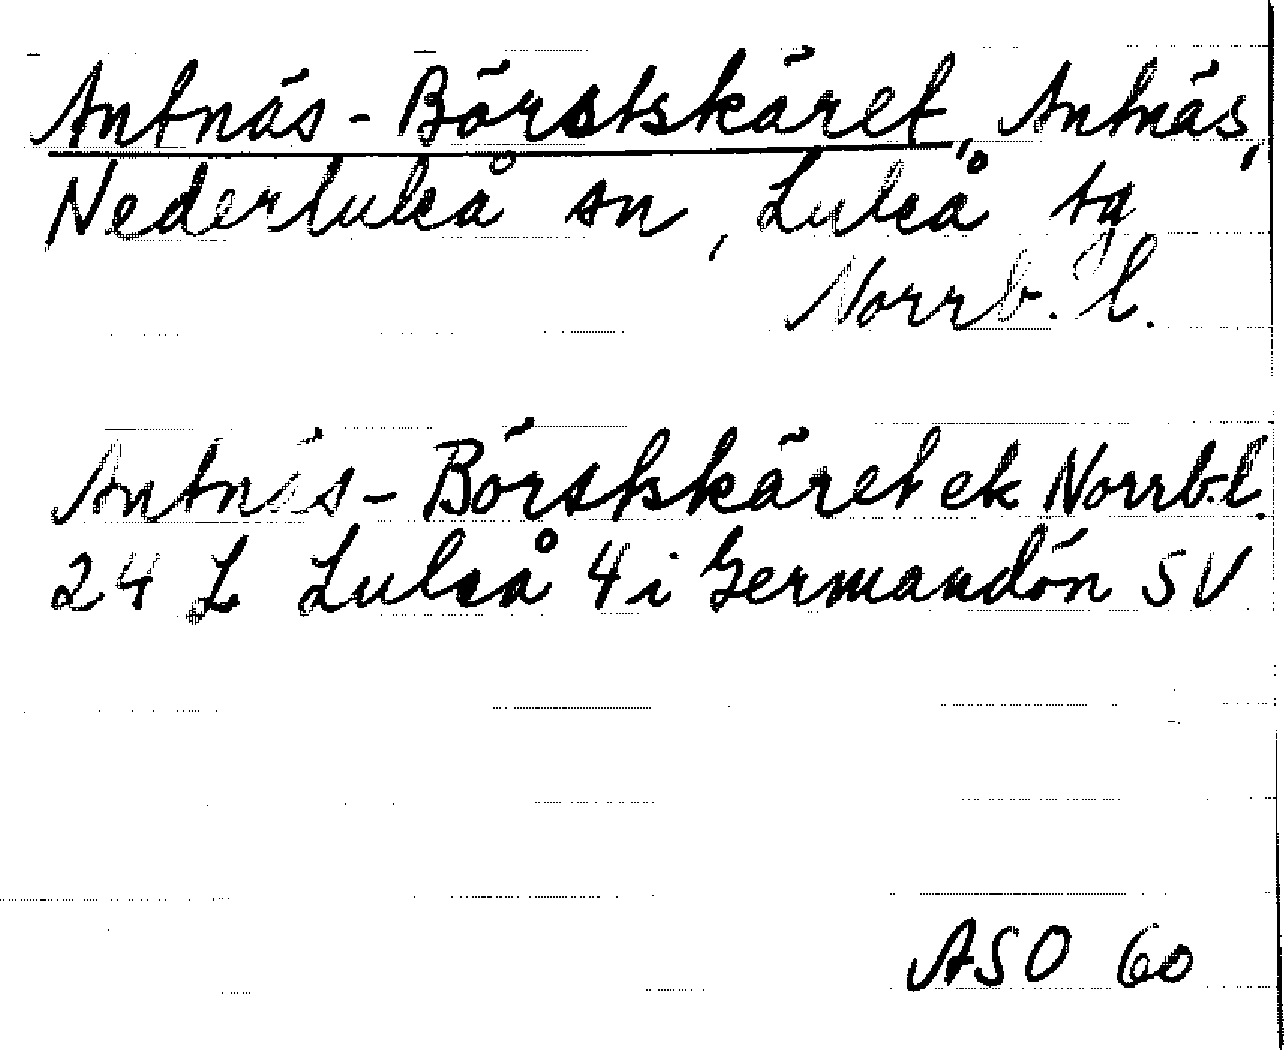 Antnäs-Börstskäret, Antnäs,
Nederluleå sn, Luleå tg
Norrb. l.
Antnäs-Börstskäret ek Norrb.l.
24 L Luleå 4i Germandön SV
ASO 60